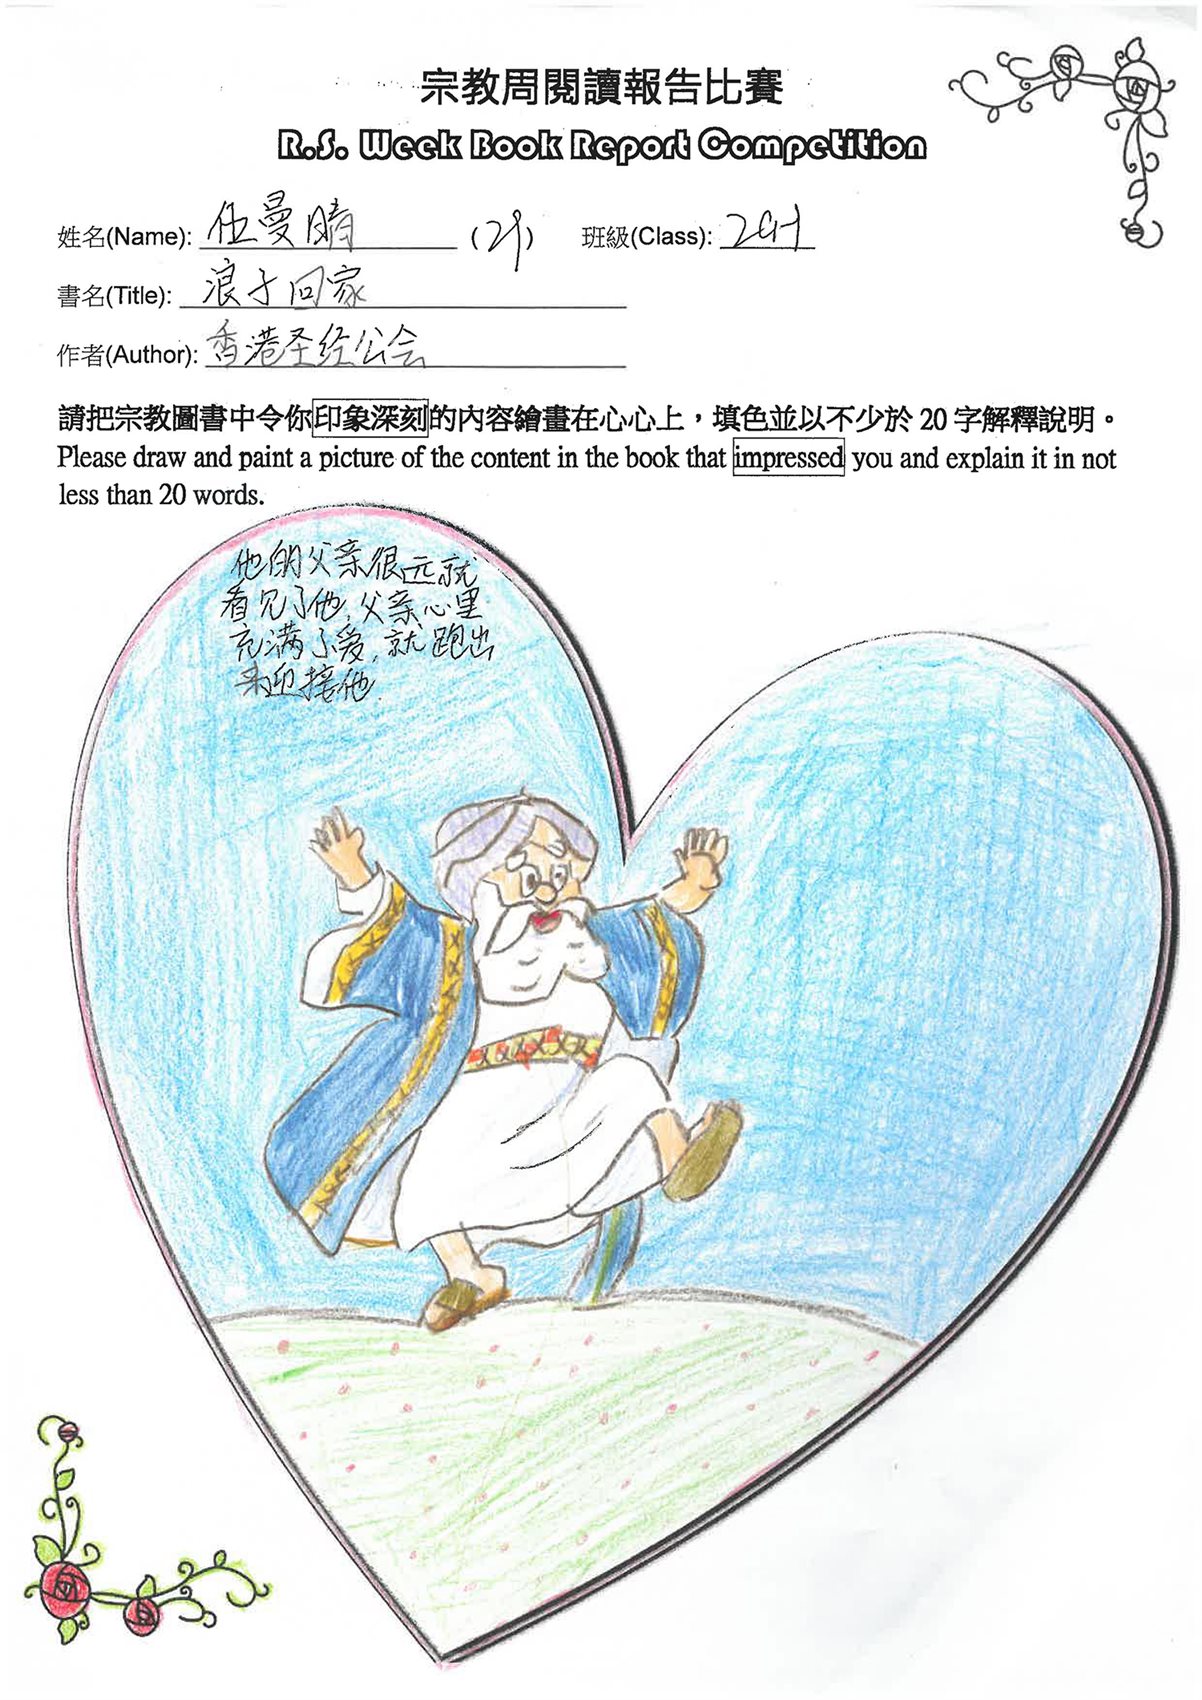 宗教周閱讀報告比賽
R.S. Week Book Report Competition
姓名(Name): 伍曼晴 班級(Class):
書名(Title): 浪子回家
作者(Author): 香港圣经公会
請把宗教圖書中令你印象深刻的內容繪畫在心心上，填色並以不少於 20 字解釋說明。
Please draw and paint a picture of the content in the book that impressed you and explain it in not
less than 20 words.
他的父亲很远就
看见了他,父亲心里
充满了爱,就跑出
来迎接他.